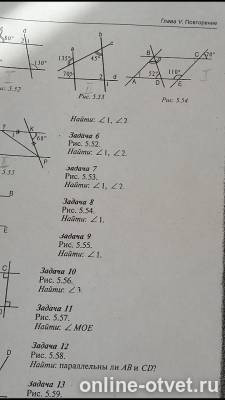 Глава V. Повторение
60°
a
2
130°
I
Рис. 5.52
135°
45°
70°
2
1
a
II
Рис. 5.53
B
C
70°
52°
110°
A
D
E
I
Рис. 5.54
Найти: ∠1, ∠2.
K
68°
P
5.55
Задача 6
Рис. 5.52.
Найти: ∠1, ∠2.
задача 7
Рис. 5.53.
Найти: ∠1, ∠2.
Задача 8
Рис. 5.54.
Найти: ∠1.
B
Задача 9
Рис. 5.55.
Найти: ∠1.
E
Задача 10
Рис. 5.56.
Найти: ∠3.
C
Задача 11
Рис. 5.57.
Найти: ∠ MOE
D
Задача 12
Рис. 5.58.
Найти: параллельны ли AB и CD?
D
Задача 13
Рис. 5.59.
online-otvet.ru